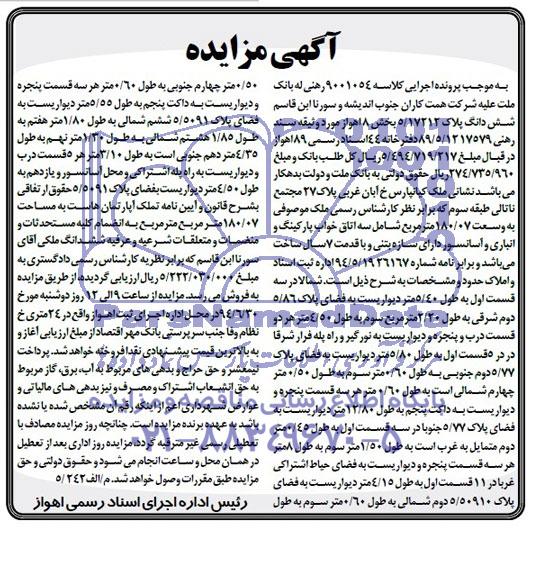 آگهی مزایده
به موجب پرونده اجرایی کلاسه ۹۰۰۱۰۵۴ رهنی له بانک
ملت علیه شرکت همت کاران جنوب اندیشه و سورنا ابن قاسم
شش دانگ پلاک ۵/۱۷۲۱۲ بخش ۸ اهواز مورد وثیقه سند
رهنی ۸۹/۵/۱۲۱۷۵۷۹ دفترخانه ۴۴ اسناد رسمی ۸۹ اهواز
در قبال مبلغ ۵/۴۹۴/۷۱۹/۲۱۷ ریال کل طلب بانک و مبلغ
۲۷۴/۷۳۵/۹۶۰ ریال حقوق دولتی به بانک ملت و دولت بدهکار
می باشد نشانی ملک کیانپارس خ آبان غربی پلاک ۲۷ مجتمع
ناتالی طبقه سوم که برابر نظر کارشناس رسمی ملک موصوفی
به وسعت ۱۸۰/۰۷ مترمربع شامل سه اتاق خواب پارکینگ و
انباری و آسانسور دارای سازه بتنی و با قدمت ۷ سال ساخت
می باشد و برابر نامه شماره ۹۴/۵/۱۹ـ۲۶۱۶۷ اداره ثبت اسناد
و املاک حدود و مشخصات به شرح ذیل است. شمالا در سه
قسمت اول به طول ۵/۴۰ متر دیواریست به فضای پلاک ۵/۸۶
دوم شرقی به طول ۲/۲۰ متر سوم به طول ۴/۵۰ متر هر دو
قسمت درب و پنجره و دیواریست به نورگیر و راه پله فرار شرقا
در ۵ قسمت اول به طول ۵/۸۰ متر دیواریست به فضای پلاک
۵/۷۷ دوم جنوبی به طول ۰/۶۰ متر سوم به طول ۰/۵۰ متر
چهارم شمالی است به طول ۰/۶۰ متر هر سه قسمت پنجره و
دیواریست به داکت پنجم به طول ۱۲/۸۰ متر دیواریست به فضای
پلاک ۵/۷۷ جنوبا در سه قسمت اول به طول ۱۰/۴۵ متر
دوم متمایل به غرب است به طول ۱/۵۰ متر سوم به طول ۸ متر
هر سه قسمت پنجره و دیواریست به فضای حیاط اشتراکی
غربا در ۱۱ قسمت اول به طول ۴/۱۵ متر دیواریست به فضای
پلاک ۵/۵۰۹۱۰ دوم شمالی به طول ۰/۶۰ متر سوم به طول
۰/۵۰ متر چهارم جنوبی به طول ۰/۶۰ متر هر سه قسمت پنجره
و دیواریست به داکت پنجم به طول ۵/۵۵ متر دیواریست به
فضای پلاک ۵/۵۰۹۱ ششم شمالی به طول ۰/۸۰ متر هفتم به
طول ۱/۸۵ هشتم شمالی به طول ۱/۳۰ متر نهم به طول
۴/۳۵ متر دهم جنوبی است به طول ۳/۱۰ متر هر ۵ قسمت درب
و دیواریست به راه پله اشتراکی و محل آسانسور و یازدهم به
طول ۴/۵۰ متر دیواریست بفضای پلاک ۵/۵۰۹۱ حقوق ارتفاقی
بشرح قانون و آیین نامه تملک آپارتمان هاست به مساحت
۱۸۰/۰۷ متر مربع مترمربع به انضمام کلیه مستحدثات و
منضمات و متعلقات شرعیه و عرفیه ششدانگ ملکی آقای
سورنا ابن قاسم که برابر نظریه کارشناس رسمی دادگستری به
مبلغ ۵/۲۲۲/۰۳۰/۰۰۰ ریال ارزیابی گردیده، از طریق مزایده
به فروش می رسد. مزایده از ساعت ۹ الی ۱۲ روز دوشنبه مورخ
۹۴/۶/۳۰ در محل اداره اجرای ثبت اهواز واقع در ۲۴ متری خ
نظام وفا جنب سرپرستی بانک مهر اقتصاد از مبلغ ارزیابی آغاز و
به بالاترین قیمت پیشنهادی نقدا فروخته خواهد شد. پرداخت
نیمعشر و حق حراج و بدهی های مربوط به آب، برق، گاز مربوط
به حق انشعاب اشتراک و مصرف و نیز بدهی های مالیاتی و
عوارض شهرداری اعم از اینکه رقم آن مشخص شده یا نشده
باشد به عهده برنده مزایده است. چنانچه روز مزایده مصادف با
تعطیلی رسمی غیر مترقبه گردد مزایده روز اداری بعد از تعطیل
در همان محل و ساعت انجام می شود و حقوق دولتی و حق
مزایده طبق مقررات وصول خواهد شد. م/الف ۵/۲۴۲
رئیس اداره اجرای اسناد رسمی اهواز
پایگاه اطلاع رسانی مناقصه و مزایده
۰۲۱-۸۸۳۴۹۶۷۰-۵